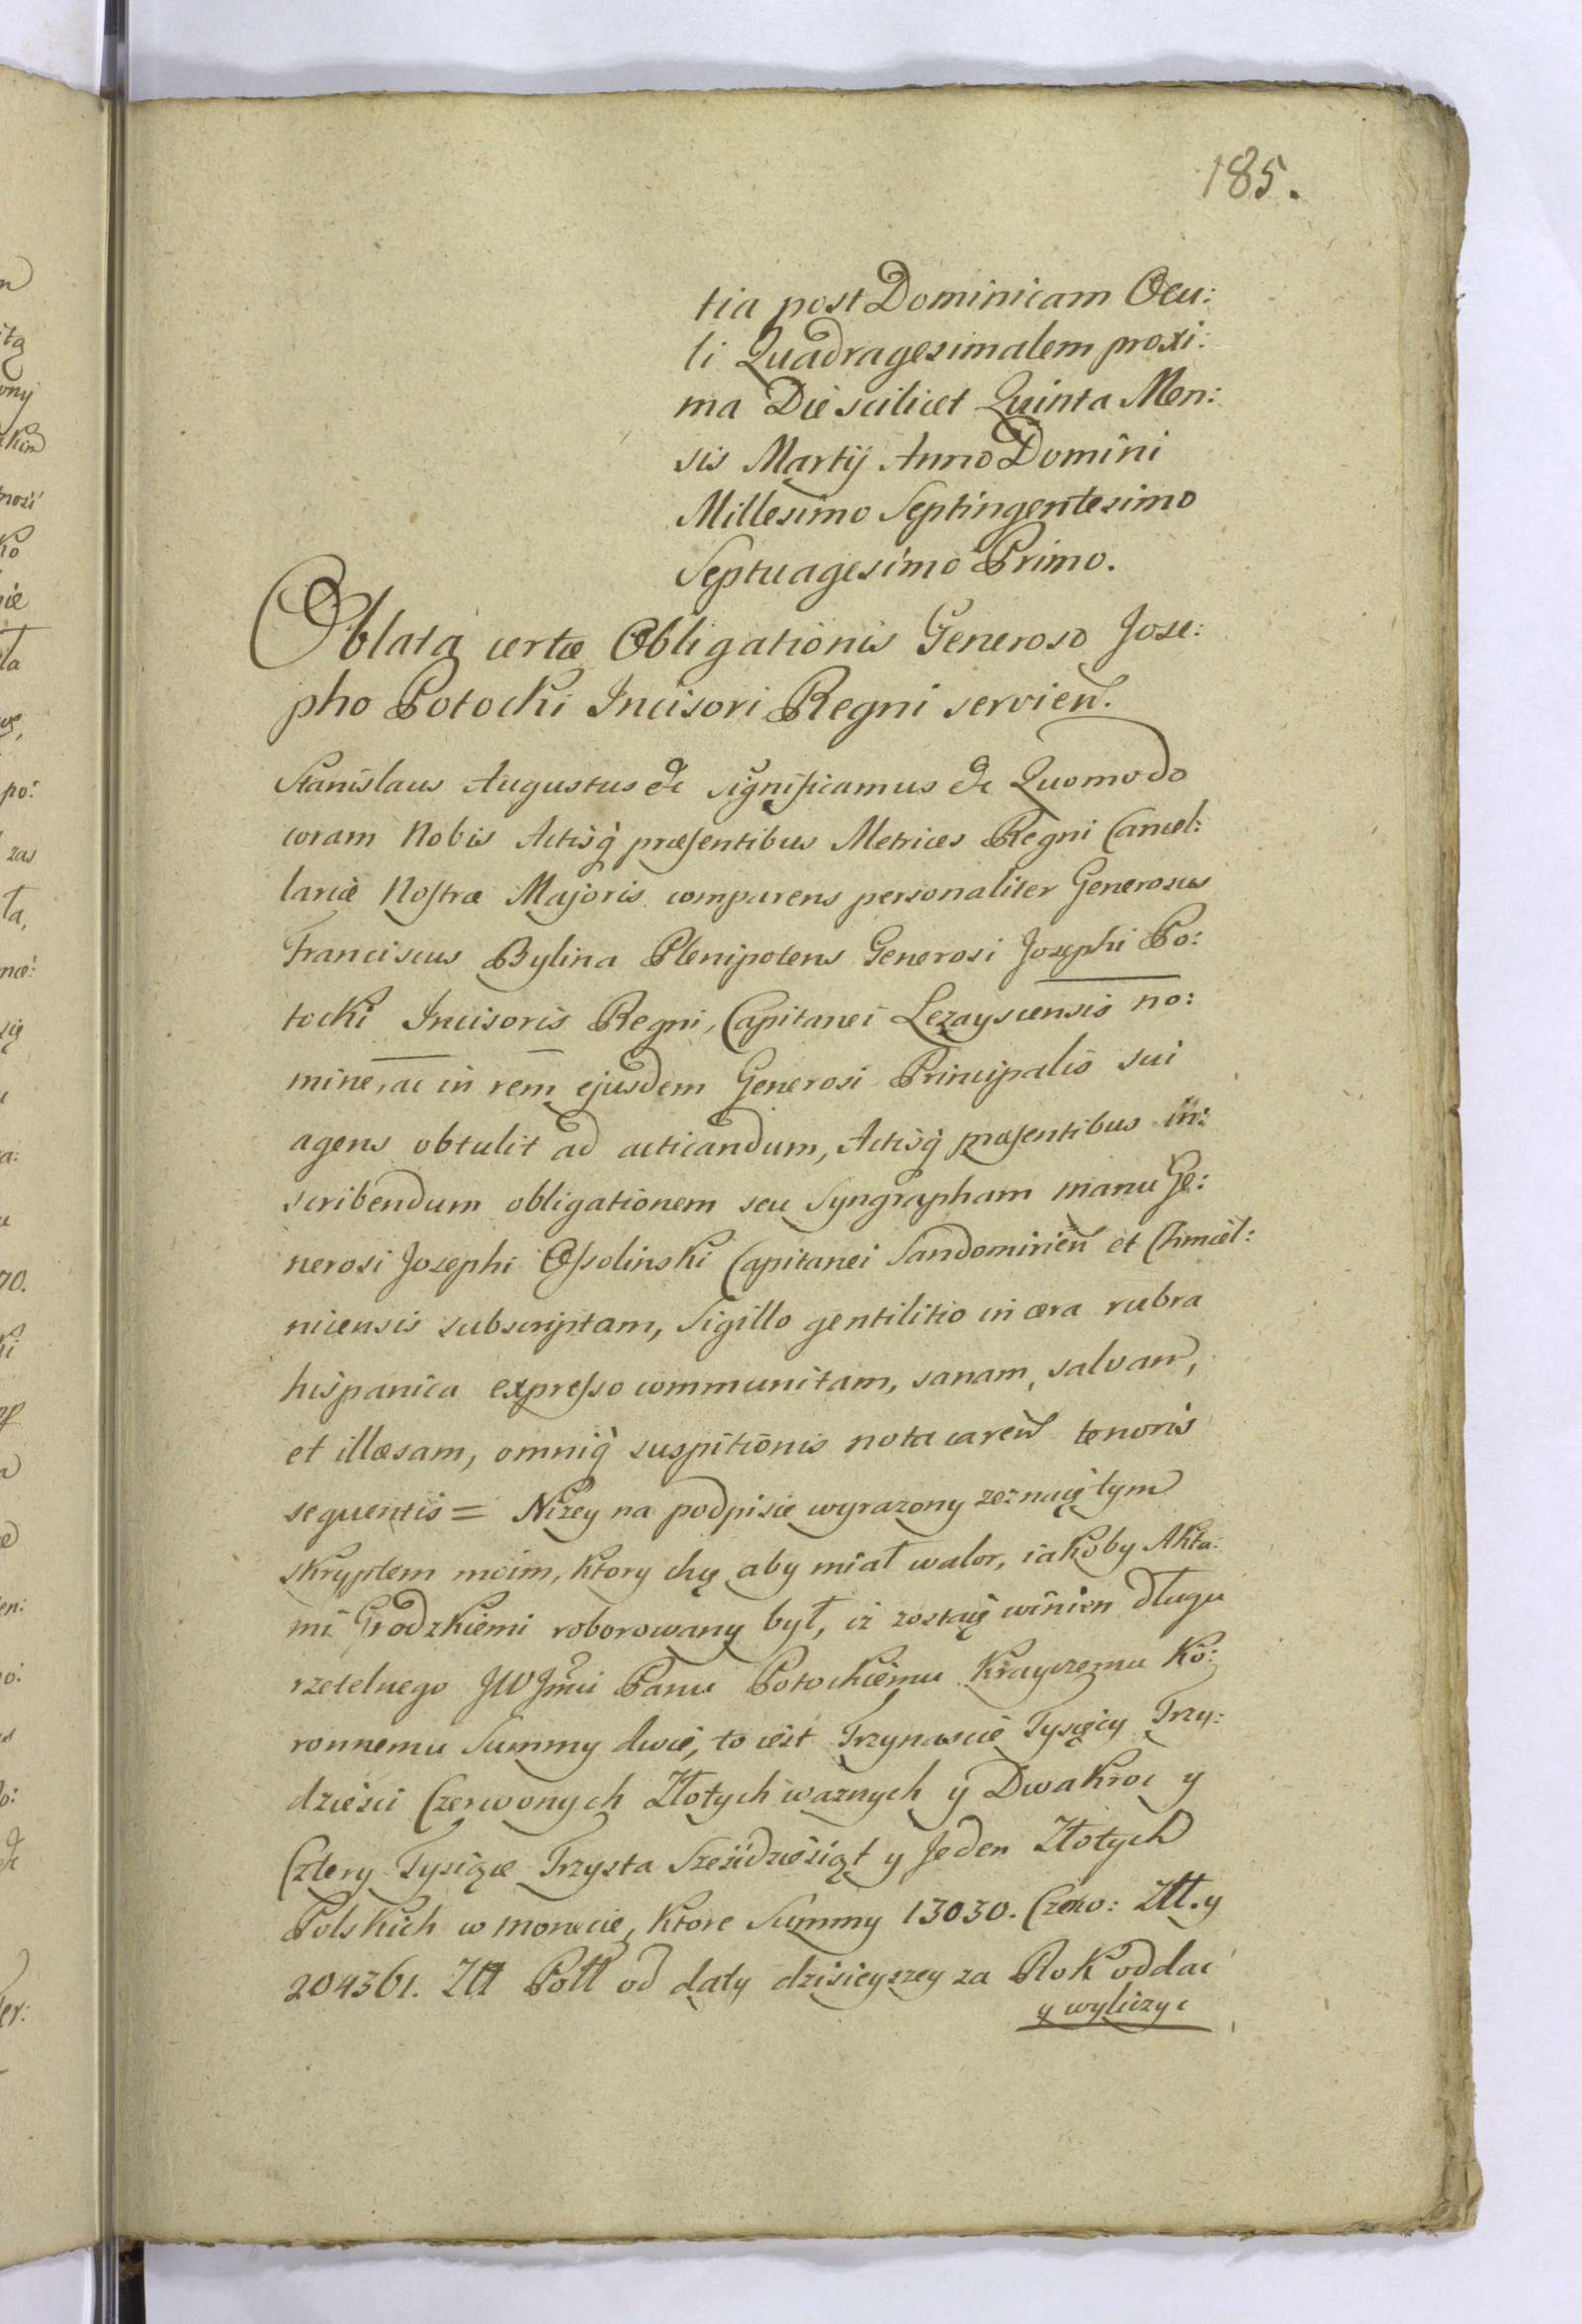 185.
tia post Dominicam Ocu:
li Quadragesimalem proxi:
ma Die scilicet Quinta Men:
sis Martij Anno Domini
Millesimo Septingentesimo
Septuagesimo Primo.
Oblata certæ Obligationis Generoso Jose:
pho Potocki Incisori Regni servien.
Stanislaus Augustus &c significamus &c Quomodo
coram Nobis Actisq præsentibus Metrices Regni Cancel:
lariæ Nostræ Majoris comparens personaliter Generosus
Franciscus Bylina Plenipotens Generosi Josephi Po:
tocki Incisoris Regni, Capitanei Lezayscensis no:
mine, ac in rem ejusdem Generosi Principalis sui
agens obtulit ad acticandum, Actisq præsentibus in:
scribendum obligationem seu Syngrapham manu Ge:
nerosi Josephi Ossolinski Capitanei Sandomirien et Chmiel:
nicensis subscriptam, Sigillo gentilitio in cera rubra
hispanica expresso communitam, sanam, salvam,
et illæsam, omniq suspitionis nota caren tenoris
sequentis = Niżey na podpisie wyrazony zeznaię tym
skryptem moim, ktory chcę aby miał walor, iakoby Akta:
mi Grodzkiemi roborowany był, iż zostaię winien długu
rzetelnego JW Jmci Panu Potockiemu Krayczemu Ko:
ronnemu Summy dwie, to iest Trzynascie Tysięcy Trzy:
dziesci Czerwonych Złotych ważnych y Dwakroc y
Cztery Tysiące Trzysta Sześćdziesiąt y Jeden Złotych
Polskich w monecie, ktore Summy 13030. Czerw: Złł. y
204361. Złł Poll od daty dzisieyszey za Rok oddać
y wyliczyć